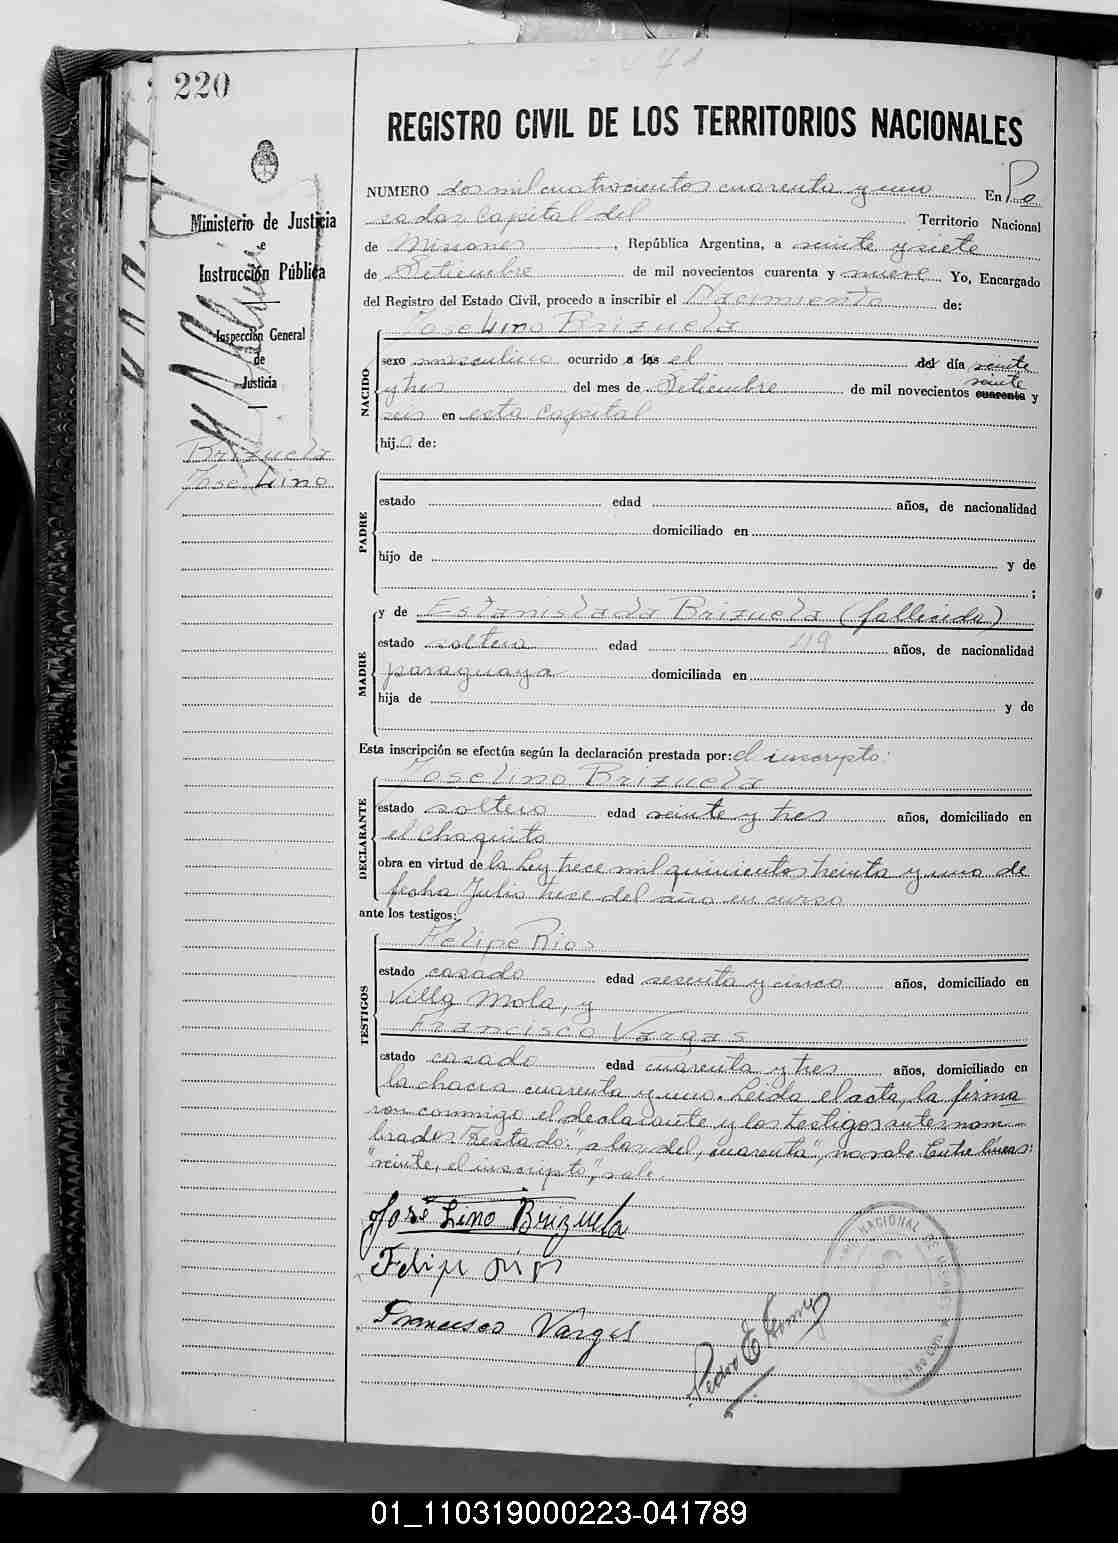 220
2441
REGISTRO CIVIL DE LOS TERRITORIOS NACIONALES
Ministerio de Justicia
e
Instrucción Pública
Inspección General
de
Justicia
Brizuela
Jose Lino
NUMERO dos mil cuatrocientos cuarenta y uno En Po
sadas Capital del Territorio Nacional
de Misiones, República Argentina, a veinte y siete
de Setiembre de mil novecientos cuarenta y nueve Yo, Encargado
del Registro del Estado Civil, procedo a inscribir el Nacimiento de:
NACIDO
Jose Lino Brizuela
sexo masculino ocurrido a las el del día veinte
y tres del mes de Setiembre de mil novecientos cuarenta y
veinte
seis en esta Capital
hijo de:
PADRE
estado edad años, de nacionalidad
domiciliado en
hijo de y de
;
MADRE
y de Estanislada Brizuela (fallecida)
estado soltera edad años, de nacionalidad
paraguaya domiciliada en
hija de y de
Esta inscripción se efectúa según la declaración prestada por: el inscripto:
DECLARANTE
Jose Lino Brizuela
estado soltero edad veinte y tres años, domiciliado en
el Chaquito
obra en virtud de la Ley trece mil quinientos treinta y uno de
fecha Julio trece del año en curso
ante los testigos:
TESTIGOS
Felipe Rios
estado casado edad sesenta y cinco años, domiciliado en
Villa Mola, y
Francisco Vargas
estado casado edad cuarenta y tres años, domiciliado en
la chacra cuarenta y uno. Leida el acta, la firma
ron conmigo el declarante y los testigos antes nom-
brados. Testado: "a las del, cuarenta", no vale. Entre líneas:
"veinte, el inscripto", vale.
José Lino Brizuela
Felipe Rios
Francisco Vargas
Pedro E.
NACIONAL DE MISIONES
01_110319000223-041789